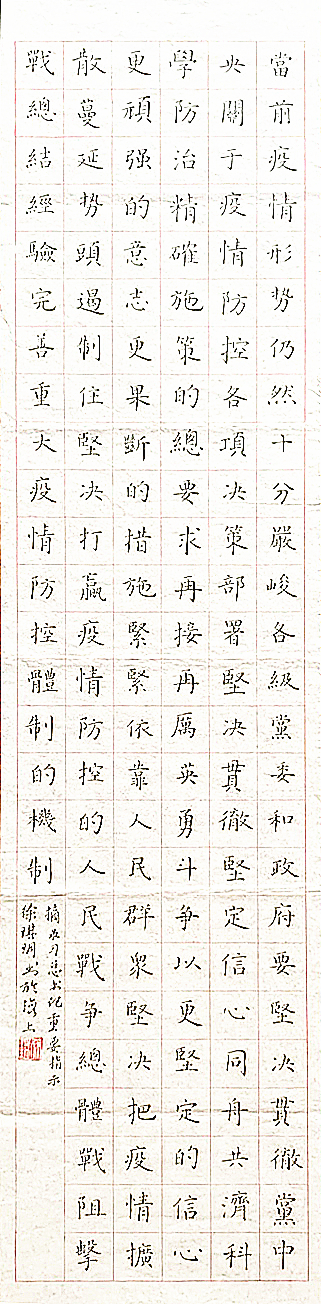 當前疫情形勢仍然十分嚴峻各級黨委和政府要堅决貫徹黨中
央關于疫情防控各項决策部署堅决貫徹堅定信心同舟共濟科
學防治精確施策的總要求再接再厲英勇斗争以更堅定的信心
更頑强的意志更果斷的措施緊緊依靠人民群衆堅决把疫情擴
散蔓延勢頭遏制住堅决打贏疫情防控的人民戰争總體戰阻擊
戰總結經驗完善重大疫情防控體制的機制
摘录习总书记重要指示
徐琪 书於海上